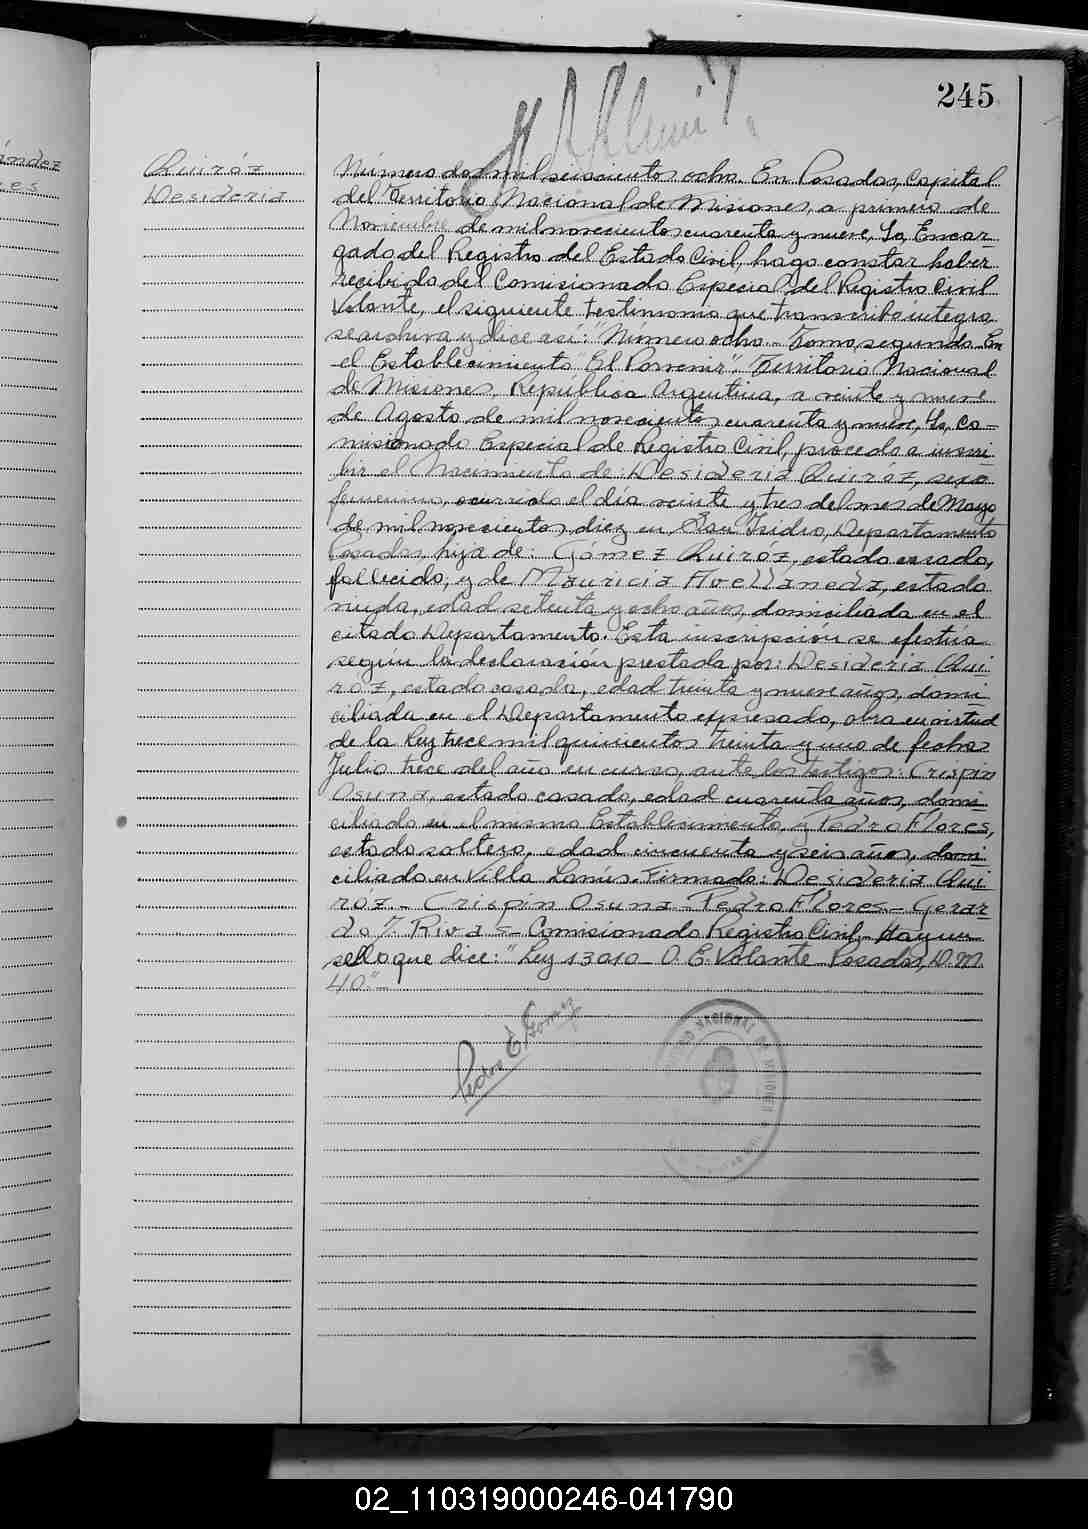 245
Quiróz
Desideria
Número dos mil seiscientos ocho. En Posadas, Capital
del Territorio Nacional de Misiones, a primero de
Noviembre de mil novecientos cuarenta y nueve, Yo, Encar-
gado del Registro del Estado Civil, hago constar haber
recibido del Comisionado Especial del Registro Civil
Volante, el siguiente testimonio que transcribo íntegro
se archiva y dice así: "Número ocho.- Tomo segundo. En
el Establecimiento "El Porvenir", Territorio Nacional
de Misiones, República Argentina, a veinte y nueve
de Agosto de mil novecientos cuarenta y nueve, Yo, Co-
misionado Especial de Registro Civil, procedo a inscri-
bir el Nacimiento de: Desideria Quiróz, sexo
femenino, ocurrido el día veinte y tres del mes de Mayo
de mil novecientos diez en San Isidro, Departamento
Posadas, hija de: Gómez Quiróz, estado casado,
fallecido, y de Mauricia Avellaneda, estado
viuda, edad setenta y ocho años, domiciliada en el
citado Departamento. Esta inscripción se efectúa
según la declaración prestada por: Desideria Qui-
róz, estado casada, edad treinta y nueve años, domi-
ciliada en el Departamento expresado, obra en virtud
de la Ley trece mil quinientos treinta y uno de fecha
Julio trece del año en curso, ante los testigos: Crispin
Osuna, estado casado, edad cuarenta años, domi-
ciliado en el mismo Establecimiento, y Pedro Flores,
estado soltero, edad cincuenta y seis años, domi-
ciliado en Villa Lanús. Firmado: Desideria Qui-
róz - Crispin Osuna - Pedro Flores - Gerar-
do T. Rivas - Comisionado Registro Civil - Hay un
sello que dice: "Ley 13010 - O. E. Volante - Posadas, D. M.
40."-
Pedro E. Gomez
NACIONAL DE MISIONES
02_110319000246-041790